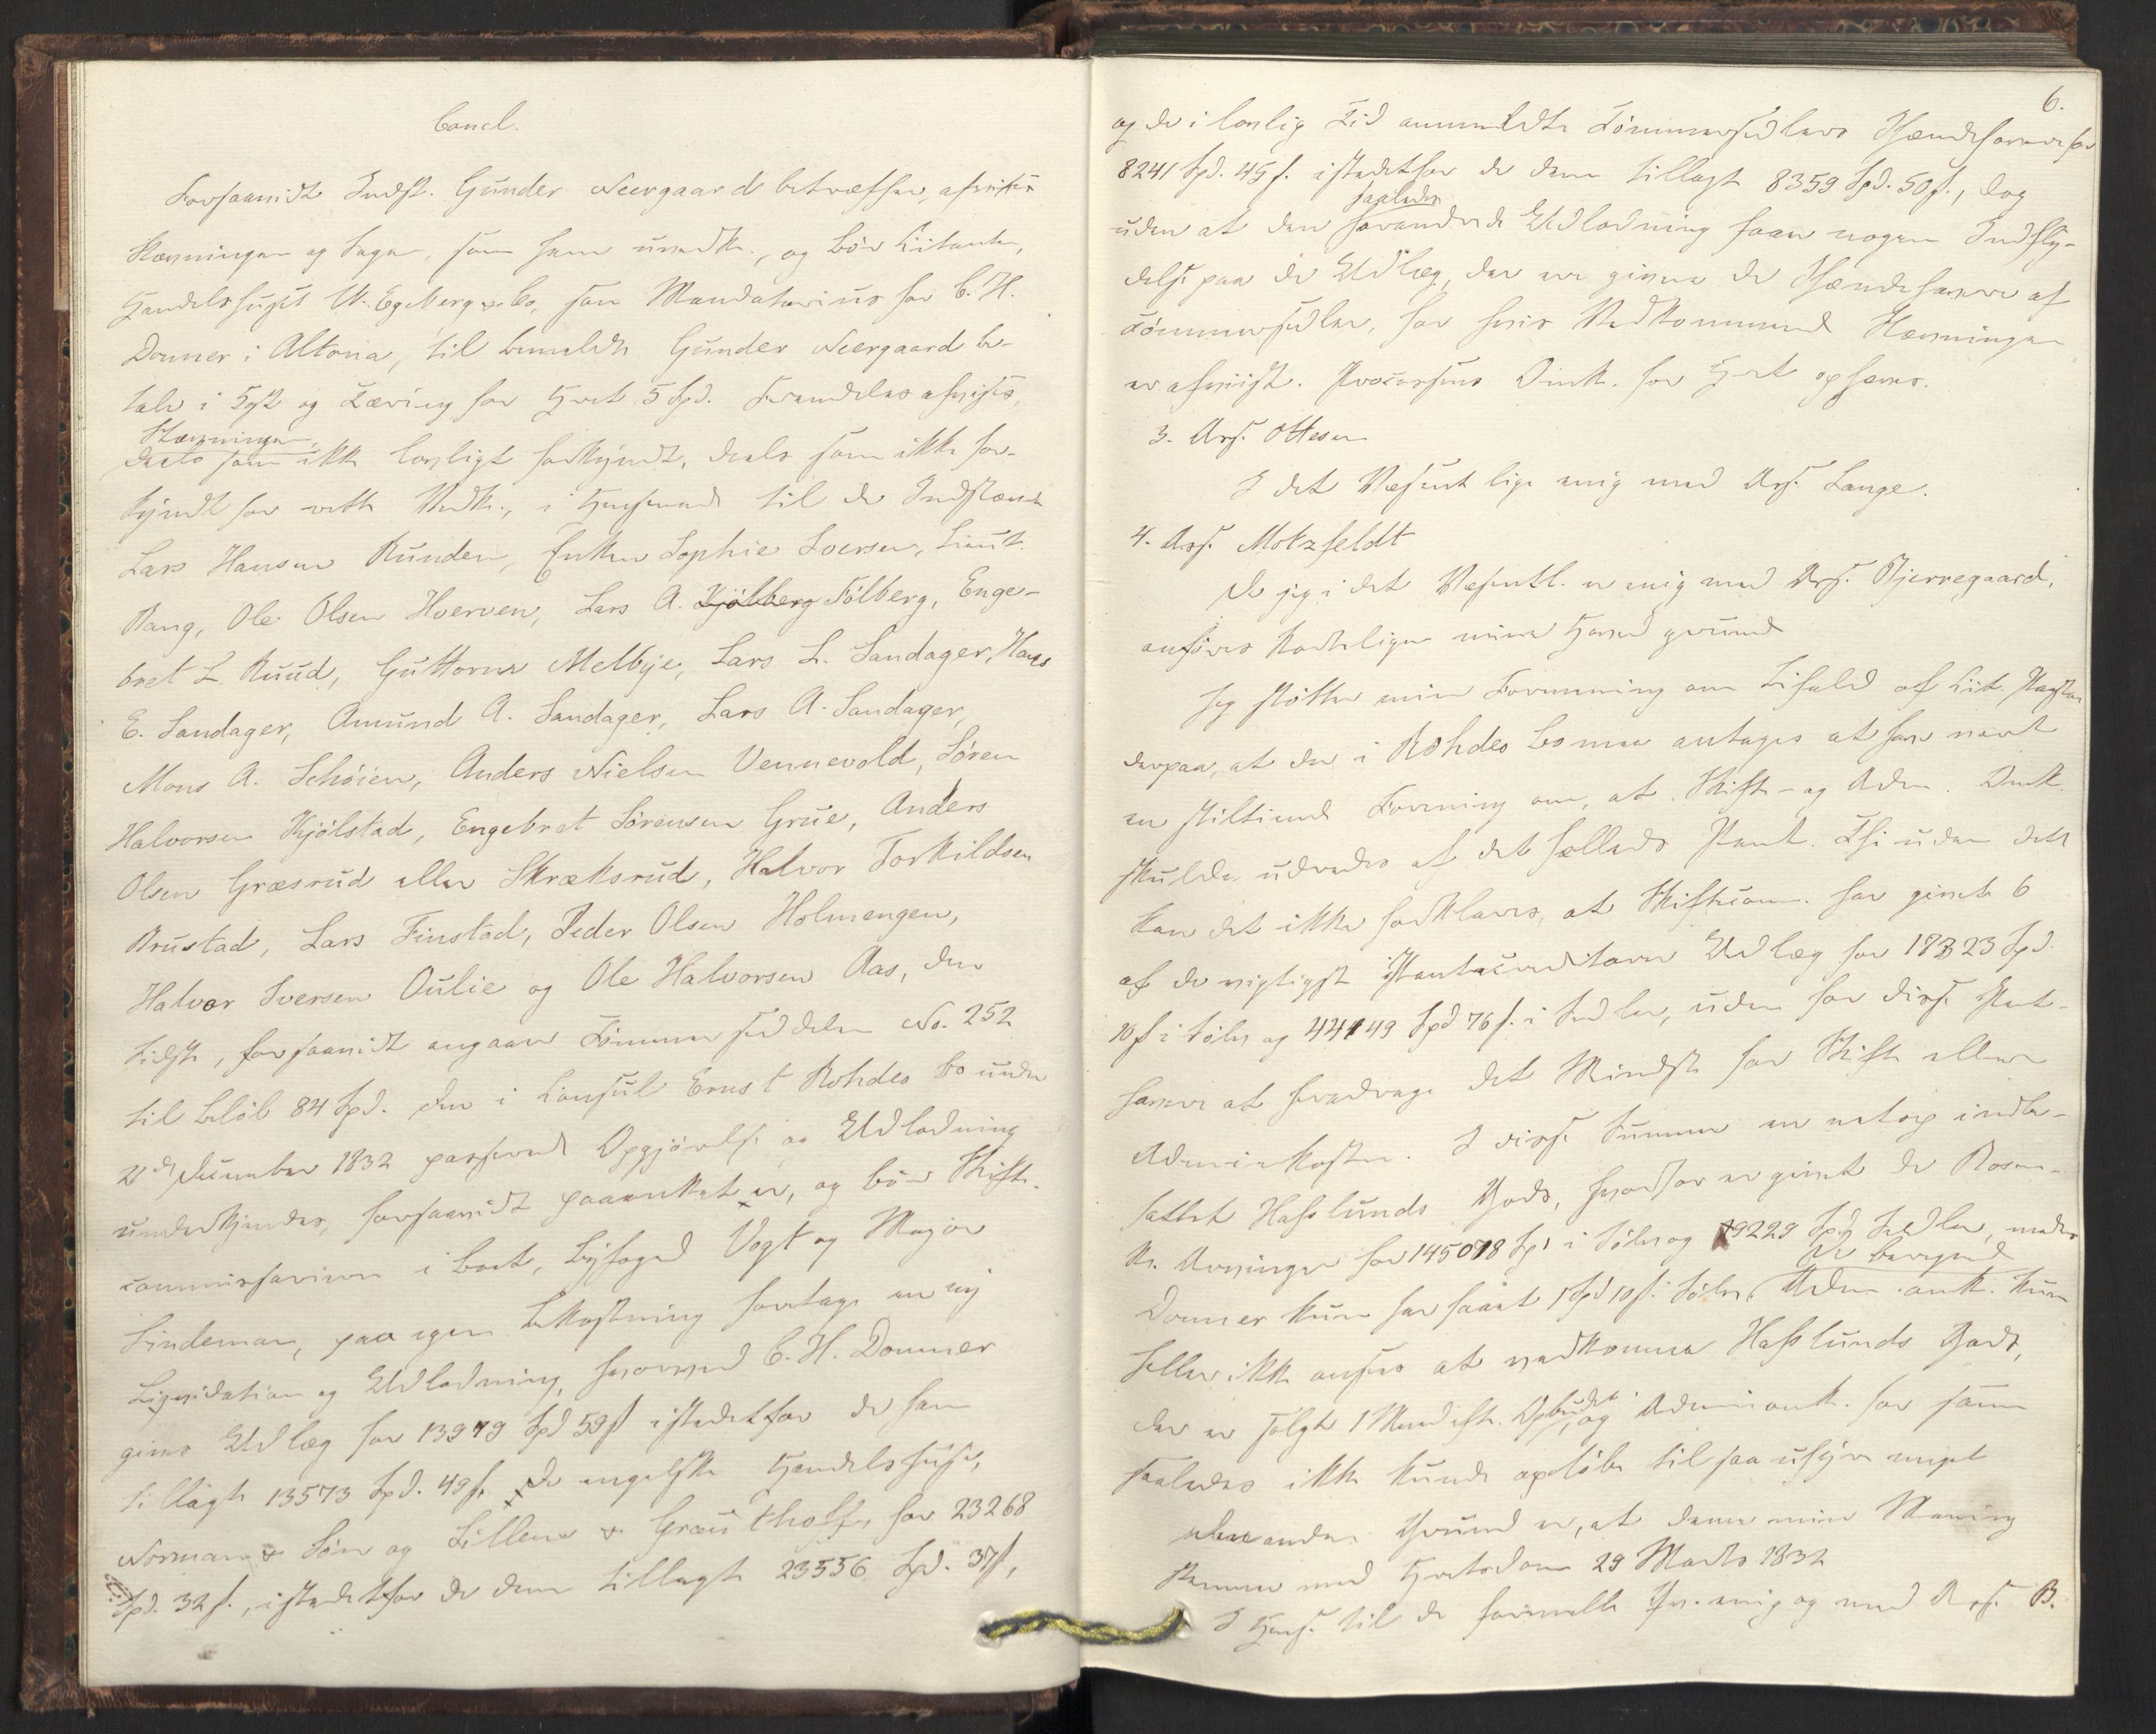 Concl.
Forsaavidt Indst. Gunder Neergaard betræffer, afvises
Stævningen og Sagen, som ham uvedk., og bør Citanten,
Handelshuset W. Egeberg & Co, som Mandatarius for C. H.
Donner i Altona, til bemeldte Gunder Neergaard be-
tale i Kost og Tæring for Hret 5 Spd. Fremdeles afvises,
Stævningen,
deels som ikke lovligt forkyndt, deels som ikke for-
kyndt for rette Vedk., i Henseende til de Indstævnte
Lars Hansen Runden, Enken Sophie Iversen, Lieut.
Bang, Ole Olsen Hverven, Lars A. Kjølberg Følberg, Enge-
bret L. Ruud, Guttorm Melbye, Lars L. Sandager, Hans
E. Sandager, Amund A. Sandager, Lars A. Sandager,
Mons A. Schøien, Anders Nielsen Vennevold, Søren
Halvorsen Kjølstad, Engebret Sørensen Grue, Anders
Olsen Græsrud eller Skræksrud, Halvor Torkildsen
Brustad, Lars Finstad, Peder Olsen Holmengen,
Halvor Iversen Oulie og Ole Halvorsen Aas, den
Sidste, forsaavidt angaaer Tømmersedlen No. 252
til Beløb 84 Spd. Den i Consul Ernst Rohdes Bo under
21de December 1832 passerede Opgjørelse og Udlodning
underkjendes, forsaavidt paaanket er, og bør Skifte-
commissarierne i Boet, Byfoged Vogt og Major
Lindeman, paa egen Bekostning foretage en ny
Liqvidation og Udlodning, hvorved C. H. Donner
gives Udlæg for 13979 Spd 59 s istedetfor de ham
tillagte 13573 Spd. 49 s. De engelske Handelshuse,
Norman & Søn og Sillem & Grauthoff, for 23268
Spd. 32 s., istedetfor de dem tillagte 23556 Spd. 37 s,
6.
og de i lovlig Tid anmeldte Tømmersedlers Ihændehavere for
8241 Spd. 45 s. istedetfor de dem tillagte 8359 Spd. 50 s., dog
saaledes
uden at den forandrede Udlodning faaer nogen Indfly-
delse paa de Udlæg, der ere givne de Ihændehavere af
Tømmersedler, for hvis Vedkommende Stævningen
er afviist. Processens Omk. for Hret ophæves.
3. Ass. Ottesen
I det Væsentlige enig med Ass. Lange.
4. Ass. Motzfeldt
Da jeg i det Væsentl. er enig med Ass. Bjerregaard,
anføres korteligen mine Hovedgrunde
Jeg støtter min Formening om Bifald af Cit. Paastand
derpaa, at der i Rohdes Bo maa antages at have været
en stiltiende Forening om, at Skifte- og Adm. Omk.
skulde udredes af det fælleds Pant. Thi uden dette
kan det ikke forklares, at Skiftecom. har givet 6
af de vigtigste Pantecreditorer Udlæg for 17323 Spd.
10 s i Sølv og 44149 Spd 76 s. i Sedler, uden for disse Pant-
havere at fradrage det Mindste for Skifte eller
Adminkoster. I disse Summer er netop indbe-
fattet Hafslunds Gods, hvorfor er givet de Rosen-
kr. Arvinger for 145078 Spd i Sølv og 19229 Spd Sedler, medens
Donner kun har faaet 1 Spd 10 s. Sølv. De beregnede Adm. omk. kan
heller ikke ansees at vedkomme Hafslunds Gods,
der er solgt 1 Maaned eft. Opbudet og Adminomk. for samme
saaledes ikke kunde opløbe til saa uhyre meget
En anden Grund er, at denne min Mening
stemmer med Hretsdom 29 Marts 1832
I Hens. til de formelle Pu. enig og med Ass. B.